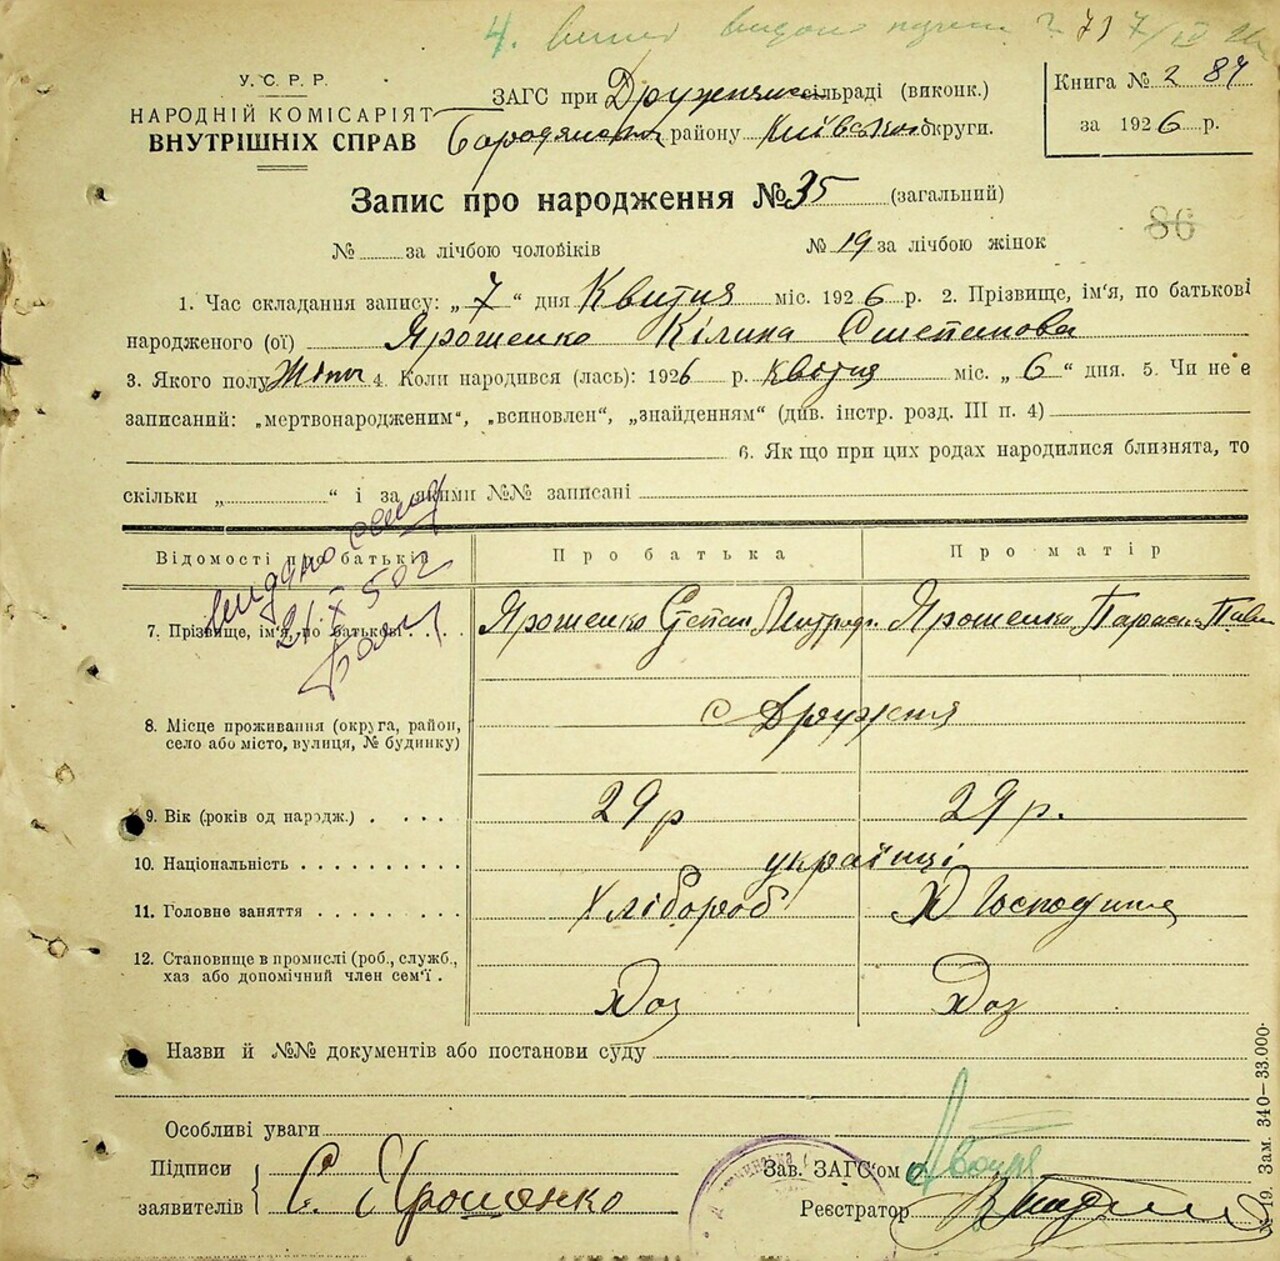 4.
У.С.Р.Р.
НАРОДНІЙ КОМІСАРІЯТ
ВНУТРІШНІХ СПРАВ
ЗАГС при Дружнянськ сільраді (виконк.)
Бородянськ району Київської округи.
Книга № 2 84
за 1926 р.
Запис про народження № 35 (загальний)
86
№ за лічбою чоловіків № 19 за лічбою жінок
1. Час складання запису: „7“ дня Квітня міс. 1926 р. 2. Прізвище, ім'я, по батькові
народженого (ої) Ярошенко Кілина Степанова
3. Якого полу Жіноч 4. Коли народився (лась): 1926 р. Квітня міс. „6“ дня. 5. Чи не є
записаний: „мертвонародженим“, „всиновлен“, „знайденням“ (див. інстр. розд. III п. 4)
6. Як що при цих родах народилися близнята, то
скільки „ “ і за якими №№ записані
Відомості про батьків Про батька Про матір
видано
21/X 50 г
7. Прізвище, ім'я, по батькові . . . . Ярошенко Степан Митроф. Ярошенко Параск Павл
8. Місце проживання (округа, район,
село або місто, вулиця, № будинку) с Дружня
9. Вік (років од народж.) . . . . 29 р 29 р.
10. Національність . . . . . . . . . . українці
11. Головне заняття . . . . . . . . . Хлібороб Д Господиня
12. Становище в промислі (роб., служб.,
хаз або допомічний член сем'ї . Хоз Хоз
Назви й №№ документів або постанови суду
Особливі уваги
Підписи
заявителів С. Ярошенко
Зав. ЗАГС'ом
Реєстратор
№ 19. Зам. 340—33.000·